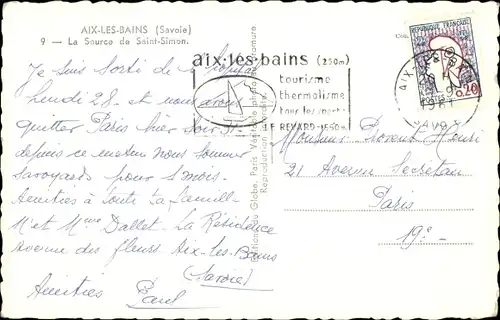 AIX-LES-BAINS (Savoie)
9 - La Source de Saint-Simon.
aix-les-bains (250m)
tourisme
thermalisme
tous les sports
LE REVARD-1550m
REPUBLIQUE FRANÇAISE
POSTES
0,20
Je suis sorti de l'hopital
Lundi 28 et nous avons
quitter Paris hier soir
depuis ce matin nous sommes
Savoyards pour 3 mois.
Amitiés à toute la famille
Mr et Mme Dallet - La Résidence
Avenue des fleurs Aix-les-Bains
(Savoie)
Amitiés Paul
Monsieur Henri
21 Avenue Secretan
Paris
19e